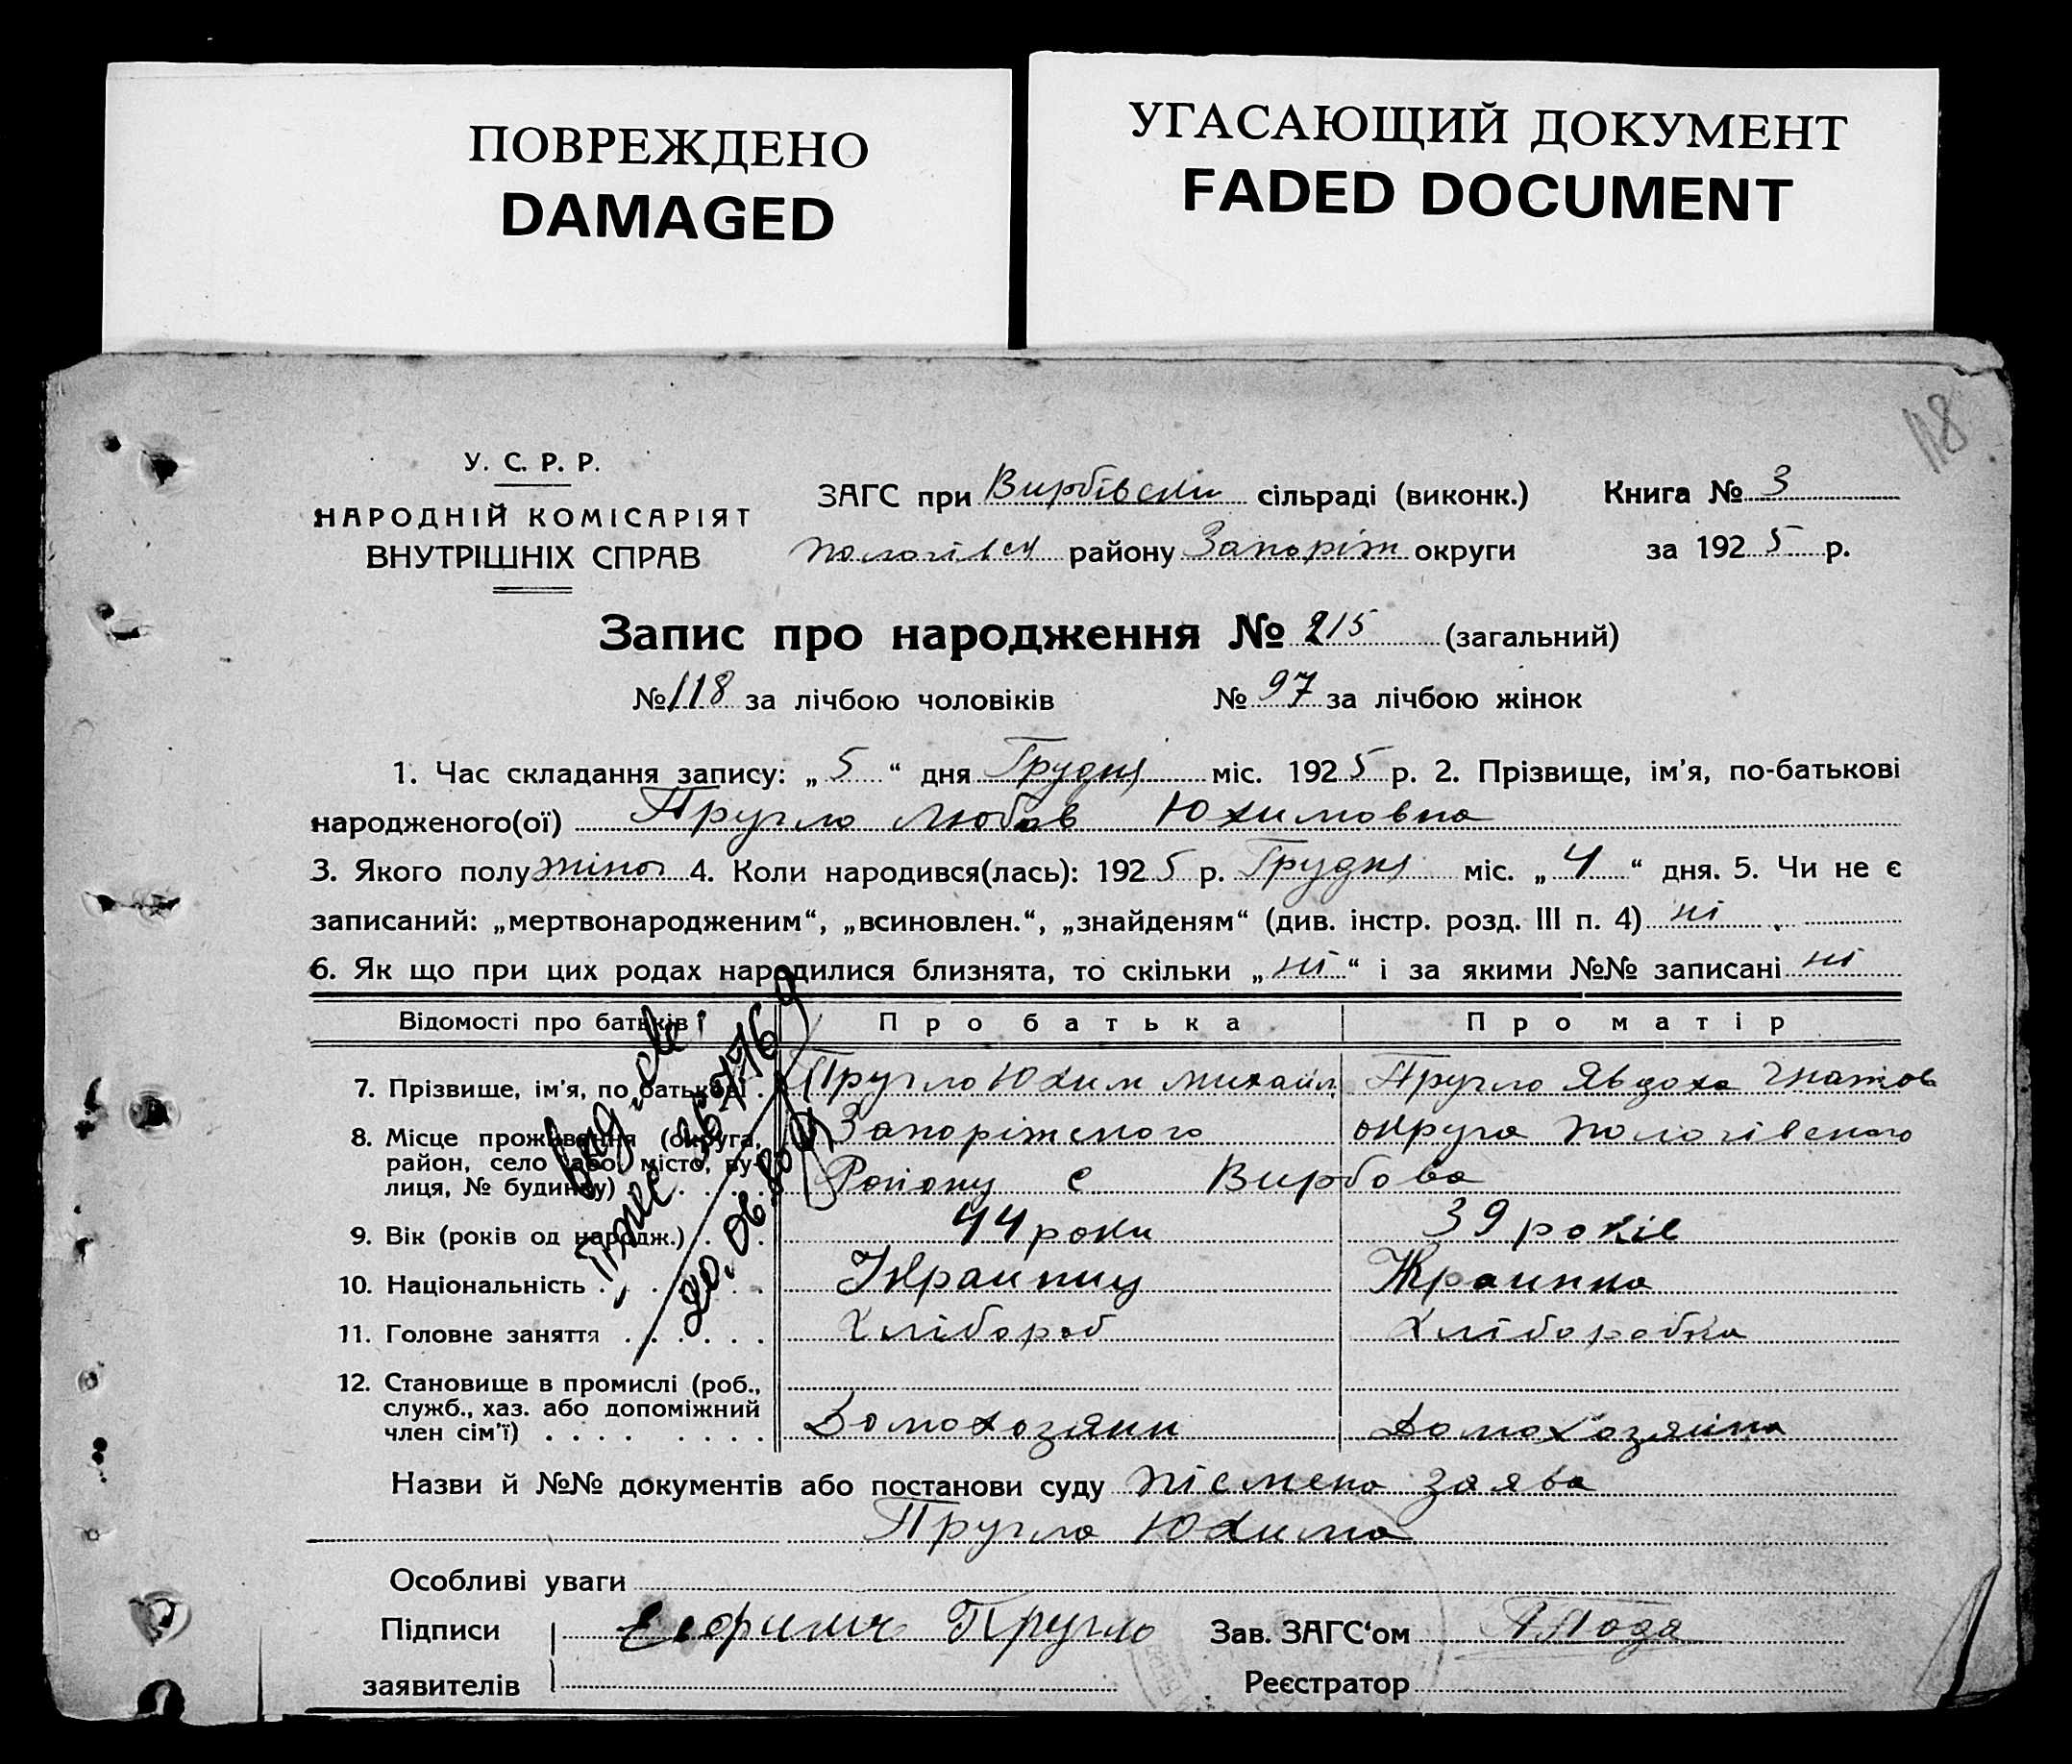 ПОВРЕЖДЕНО
DAMAGED
УГАСАЮЩИЙ ДОКУМЕНТ
FADED DOCUMENT
118
У. С. Р. Р.
НАРОДНІЙ КОМІСАРІЯТ
ВНУТРІШНІХ СПРАВ
ЗАГС при Вирбівськи сільраді (виконк.)
Пологівськ району Запоріж округи
Книга № 3
за 1925 р.
Запис про народження № 215 (загальний)
№ 118 за лічбою чоловіків № 97 за лічбою жінок
1. Час складання запису: „ 5 “ дня Грудня міс. 1925 р. 2. Прізвище, ім'я, по-батькові
народженого(ої) Пругло Любов Юхимовна
3. Якого полу жіноч 4. Коли народився(лась): 1925 р. Грудня міс. „ 4 “ дня. 5. Чи не є
записаний: „мертвонародженим“, „всиновлен.“, „знайденям“ (див. інстр. розд. III п. 4) ні
6. Як що при цих родах народилися близнята, то скільки „ ні “ і за якими №№ записані ні
Відомості про батьків Про батька Про матір
7. Прізвище, ім'я, по батькові . Пругло Юхим Михайл. Пругло Явдоха Гнатов
8. Місце проживання (округа, Запоріжського округа Пологівского
район, село або місто, ву-
лиця, № будинку) Району с Вирбова
9. Вік (років од народж.) 44 роки 39 років
10. Національність Украиниц Украинка
11. Головне заняття Хлібороб Хліборобка
12. Становище в промислі (роб.,
служб., хаз. або допоміжний
член сім'ї) Домохозяин Домохозяйка
20.06.80
Назви й №№ документів або постанови суду пісмена заява
Пругла Юхима
Особливі уваги
Підписи Пругло Зав. ЗАГС‘ом
заявителів Реєстратор